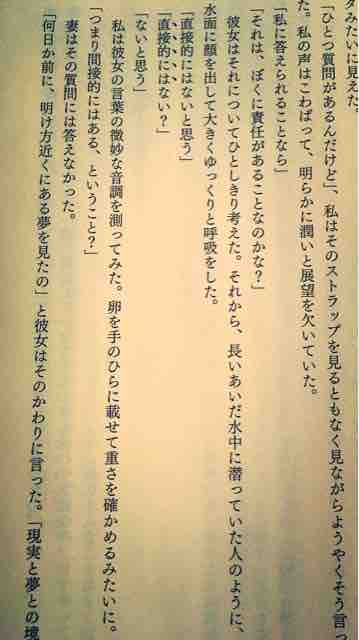 タみたいに見えた。
「ひとつ質問があるんだけど」、私はそのストラップを見るともなく見ながらようやくそう言っ
た。私の声はこわばって、明らかに潤いと展望を欠いていた。
「私に答えられることなら」
「それは、ぼくに責任があることなのかな？」
彼女はそれについてひとしきり考えた。それから、長いあいだ水中に潜っていた人のように、
水面に顔を出して大きくゆっくりと呼吸をした。
「直接的にはないと思う」
「直接的にはない？」
「ないと思う」
私は彼女の言葉の微妙な音調を測ってみた。卵を手のひらに載せて重さを確かめるみたいに。
「つまり間接的にはある、ということ？」
妻はその質問には答えなかった。
「何日か前に、明け方近くにある夢を見たの」と彼女はそのかわりに言った。「現実と夢との境